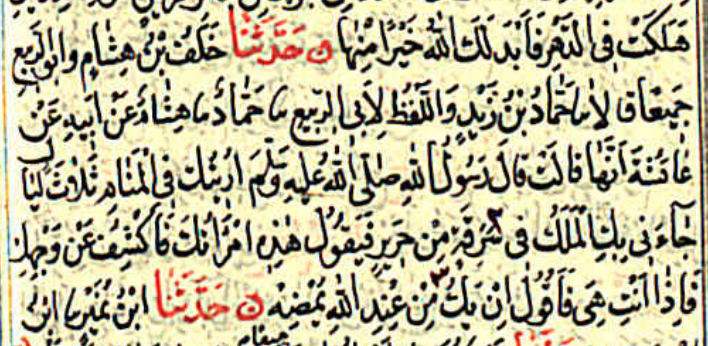 هلكت في الدهر فأبدلك الله خيرا منها ۞ حدثنا خلف بن هشام وابو الربيع
جميعا قالا نا حماد بن زيد واللفظ لابي الربيع نا حماد نا هشام عن ابيه عن
عائشة انها قالت قال رسول الله صلى الله عليه وسلم اريتك في المنام ثلاث ليال
جاءني بك الملك في سرقة من حرير فيقول هذه امرأتك فاكشف عن وجهك
فاذا انت هي فاقول ان يك من عند الله يمضه ۞ حدثنا ابن نمير نا ابن